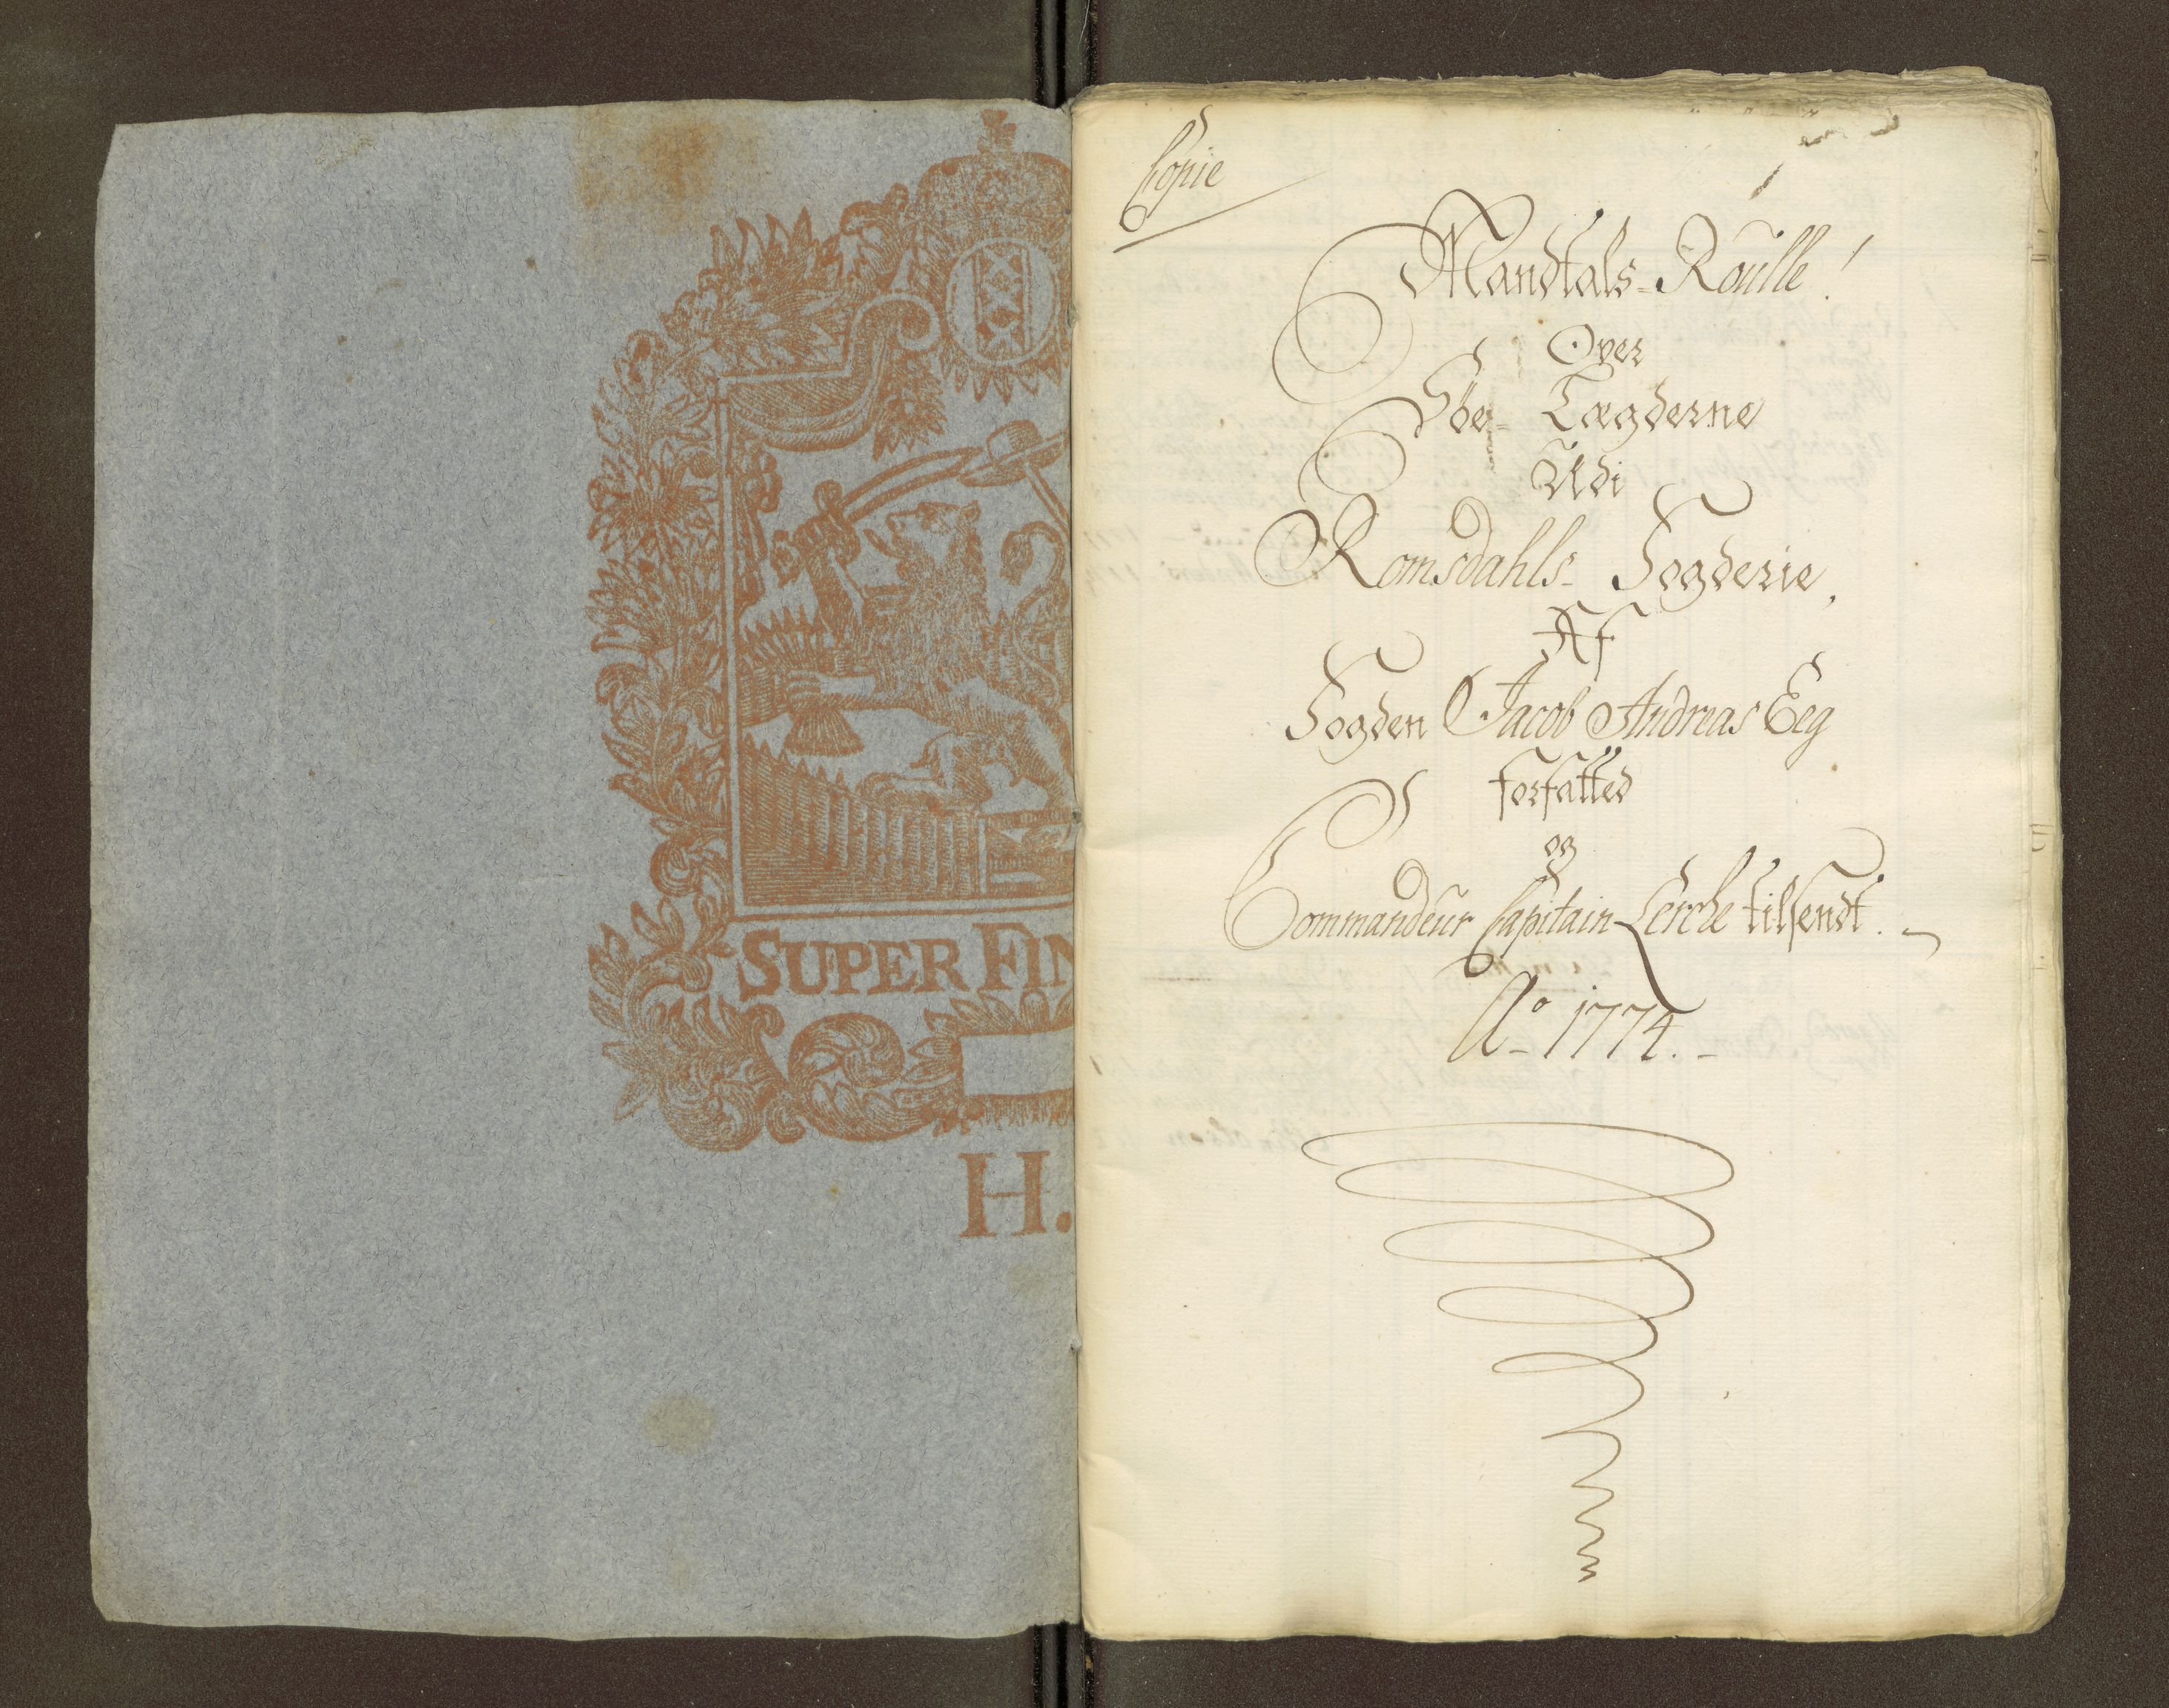 SUPER FIN
H.
Copie
Mandtals-Roulle!
Over
Söe-Lægderne
Udi
Romsdahls-Fogderie,
Af
Fogden Jacob Andreas Eeg
forfatted
og
Commandeur Capitain Lerche tilsendt.
Ao 1774.